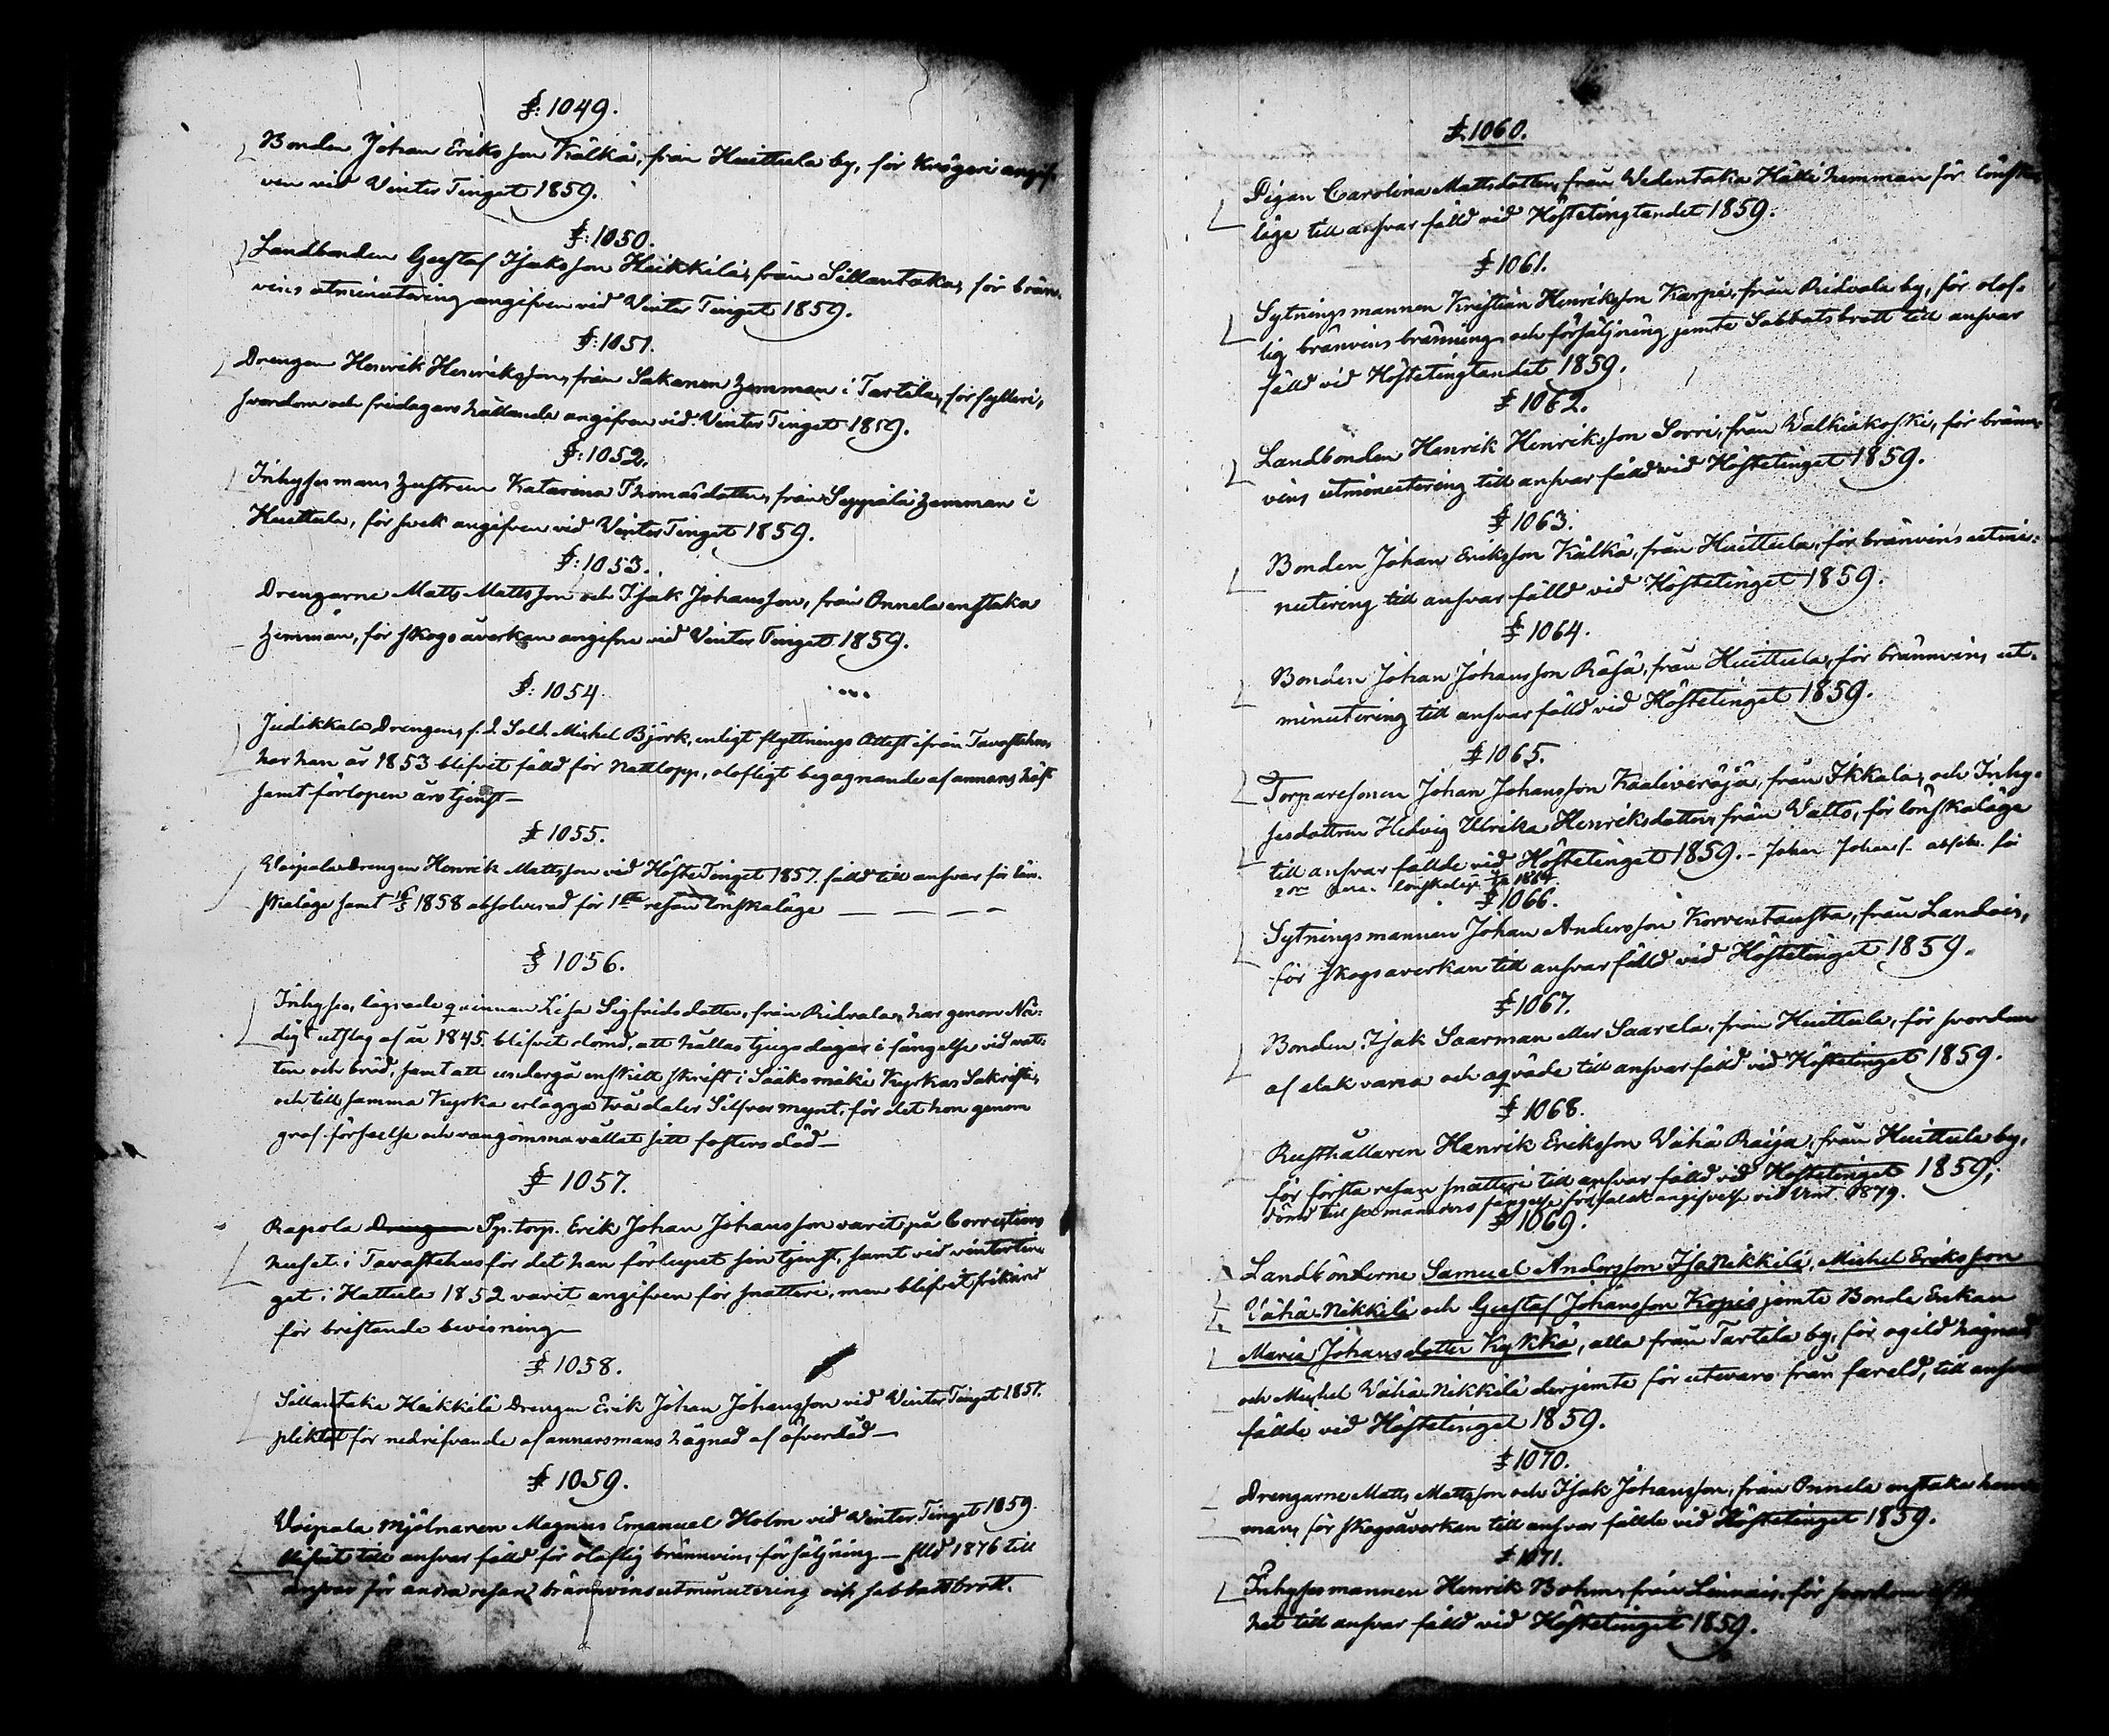 §: 1049.
Bonden Johan Eriksson Kälkä, från Huittula by, för krögeri angif-
ven vid Vinter Tinget 1859.
§: 1050.
Landbonden Gustaf Isaksson Heikkilä, från Sillantaka, för brän-
vins utminutering angifven vid Vinter Tinget 1859.
§: 1051.
Drengen Henrik Henriksson, från Sakanen hemman i Tarttila, för fylleri,
svordom och fridagars hållande angifven vid Vinter Tinget 1859.
§: 1052.
Inhysesmans hustrun Katarina Thomasdotter, från Seppälä hemman i
Huittula, för svek angifven vid Vinter Tinget 1859.
§: 1053.
Drengarne Matts Mattsson och Isak Johansson, från Onnela enstaka
hemman, för skogsåverkan angifne vid Vinter Tinget 1859.
§: 1054.
Judikkala Drengen, f. d. Sold. Michel Björk, enligt flyttnings Attest ifrån Tavastehus,
har han år 1853 blifvit fälld för Nattlopp, olofligt begagnande af annans häst
samt förlopen årstjenst —
§ 1055.
Voipala Drengen Henrik Mattsson vid Höste Tinget 1857 fälld till ansvar för lön-
skaläge samt 16/5 1858 absolverad för 1sta resan lönskaläge — — — —
§ 1056.
Inhyses, lägrade quinnan Lisa Sigfridsdotter, från Ridvala, har genom Nå-
digt utslag af år 1845 blifvit dömd, att hållas tjugo dagar i fängelse vid vat-
ten och bröd, samt att undergå enskilt skrift i Sääksmäki Kyrkas Sakristi,
och till samma Kyrka erlägga två daler Silfvermynt, för det hon genom
grof förseelse och vangömma vållat sitt fosters död —
§ 1057.
Rapola Drengen Sp. torp. Erik Johan Johansson varit på Corrections
huset i Tavastehus för det han förlupit sin tjenst, samt vid vintertin-
get i Hattula 1852 varit angifven för snatteri, men blifvit frikänd
för bristande bevisning —
§ 1058.
Sillantaka Heikkilä Drengen Erik Johan Johansson vid Vinter Tinget 1857.
pliktat för nedrifvande af annarsmans hägnad af öfverdåd —
§ 1059.
Voipala Mjölnaren Magnus Emanuel Holm vid Vinter Tinget 1859
blifvit till ansvar fälld för oloflig brännvins försäljning — Alld 1876 till
ansvar för andra resan brännvinsutminutering och sabbatsbrott.
§. 1060.
Pigan Carolina Mattsdotter, från Wedentaka Hälli hemman för lönska-
läge till ansvar fälld vid Höstetingtandet 1859.
§ 1061.
Sytningsmannen Kristian Henriksson Karpi, från Ridvala by, för olof-
lig bränvins bränning och försäljning jemte Sabbatsbrott till ansvar
fälld vid Höstetingtandet 1859.
§ 1062.
Landbonden Henrik Henriksson Sorri, från Walkiakoski, för bränn-
vins utminutering till ansvar fälld vid Höstetinget 1859.
§ 1063.
Bonden Johan Eriksson Kälkä, från Huittula, för bränvins utmi-
nutering till ansvar fälld vid Höstetinget 1859.
§ 1064.
Bonden Johan Johansson Räsä, från Huittula, för brännvins ut-
minutering till ansvar fälld vid Höstetinget 1859.
§ 1065.
Torparesonen Johan Johansson Kaaliveräjä, från Ikkala, och Inhy-
sesdottren Hedvig Ulrika Henriksdotter från Walto, för lönskaläge
till ansvar fällde vid Höstetinget 1859. – Johan Johanss. absolv. för
2dra resan lönskaläge 1864.
§ 1066.
Sytningsmannen Johan Andersson Korventausta, från Landois,
för skogsåverkan till ansvar fälld vid Höstetinget 1859.
§ 1067.
Bonden Isak Saarman eller Saarela, från Huittula, för svordom
af elak vana och oqväde till ansvar fälld vid Höstetinget 1859.
§ 1068.
Rusthållaren Henrik Eriksson Vähä Raija, från Huittula by,
för första resan snatteri till ansvar fälld vid Höstetinget 1859;
dömd till sex månaders fängelse för falsk angifvelse vid Vint. 1879.
§ 1069.
Landbönderne Samuel Andersson Iso Nikkilä, Michel Eriksson
Vähä Nikkilä och Gustaf Johansson Kopis jemte Bonde Enkan
Maria Johansdotter Kykkä, alla från Tarttila by, för ogild hägnad
och Michel Vähä Nikkilä derjemte för utevaro från fareld, till ansvar
fällde vid Höstetinget 1859.
§ 1070.
Drengarne Matts Mattsson och Isak Johansson, från Onnela enstaka hem-
man, för skogsåverkan till ansvar fällde vid Höstetinget 1859.
§ 1071.
Inhysesmannen Henrik Bohm, från Linnais, för svordom
het till ansvar fälld vid Höstetinget 1859.